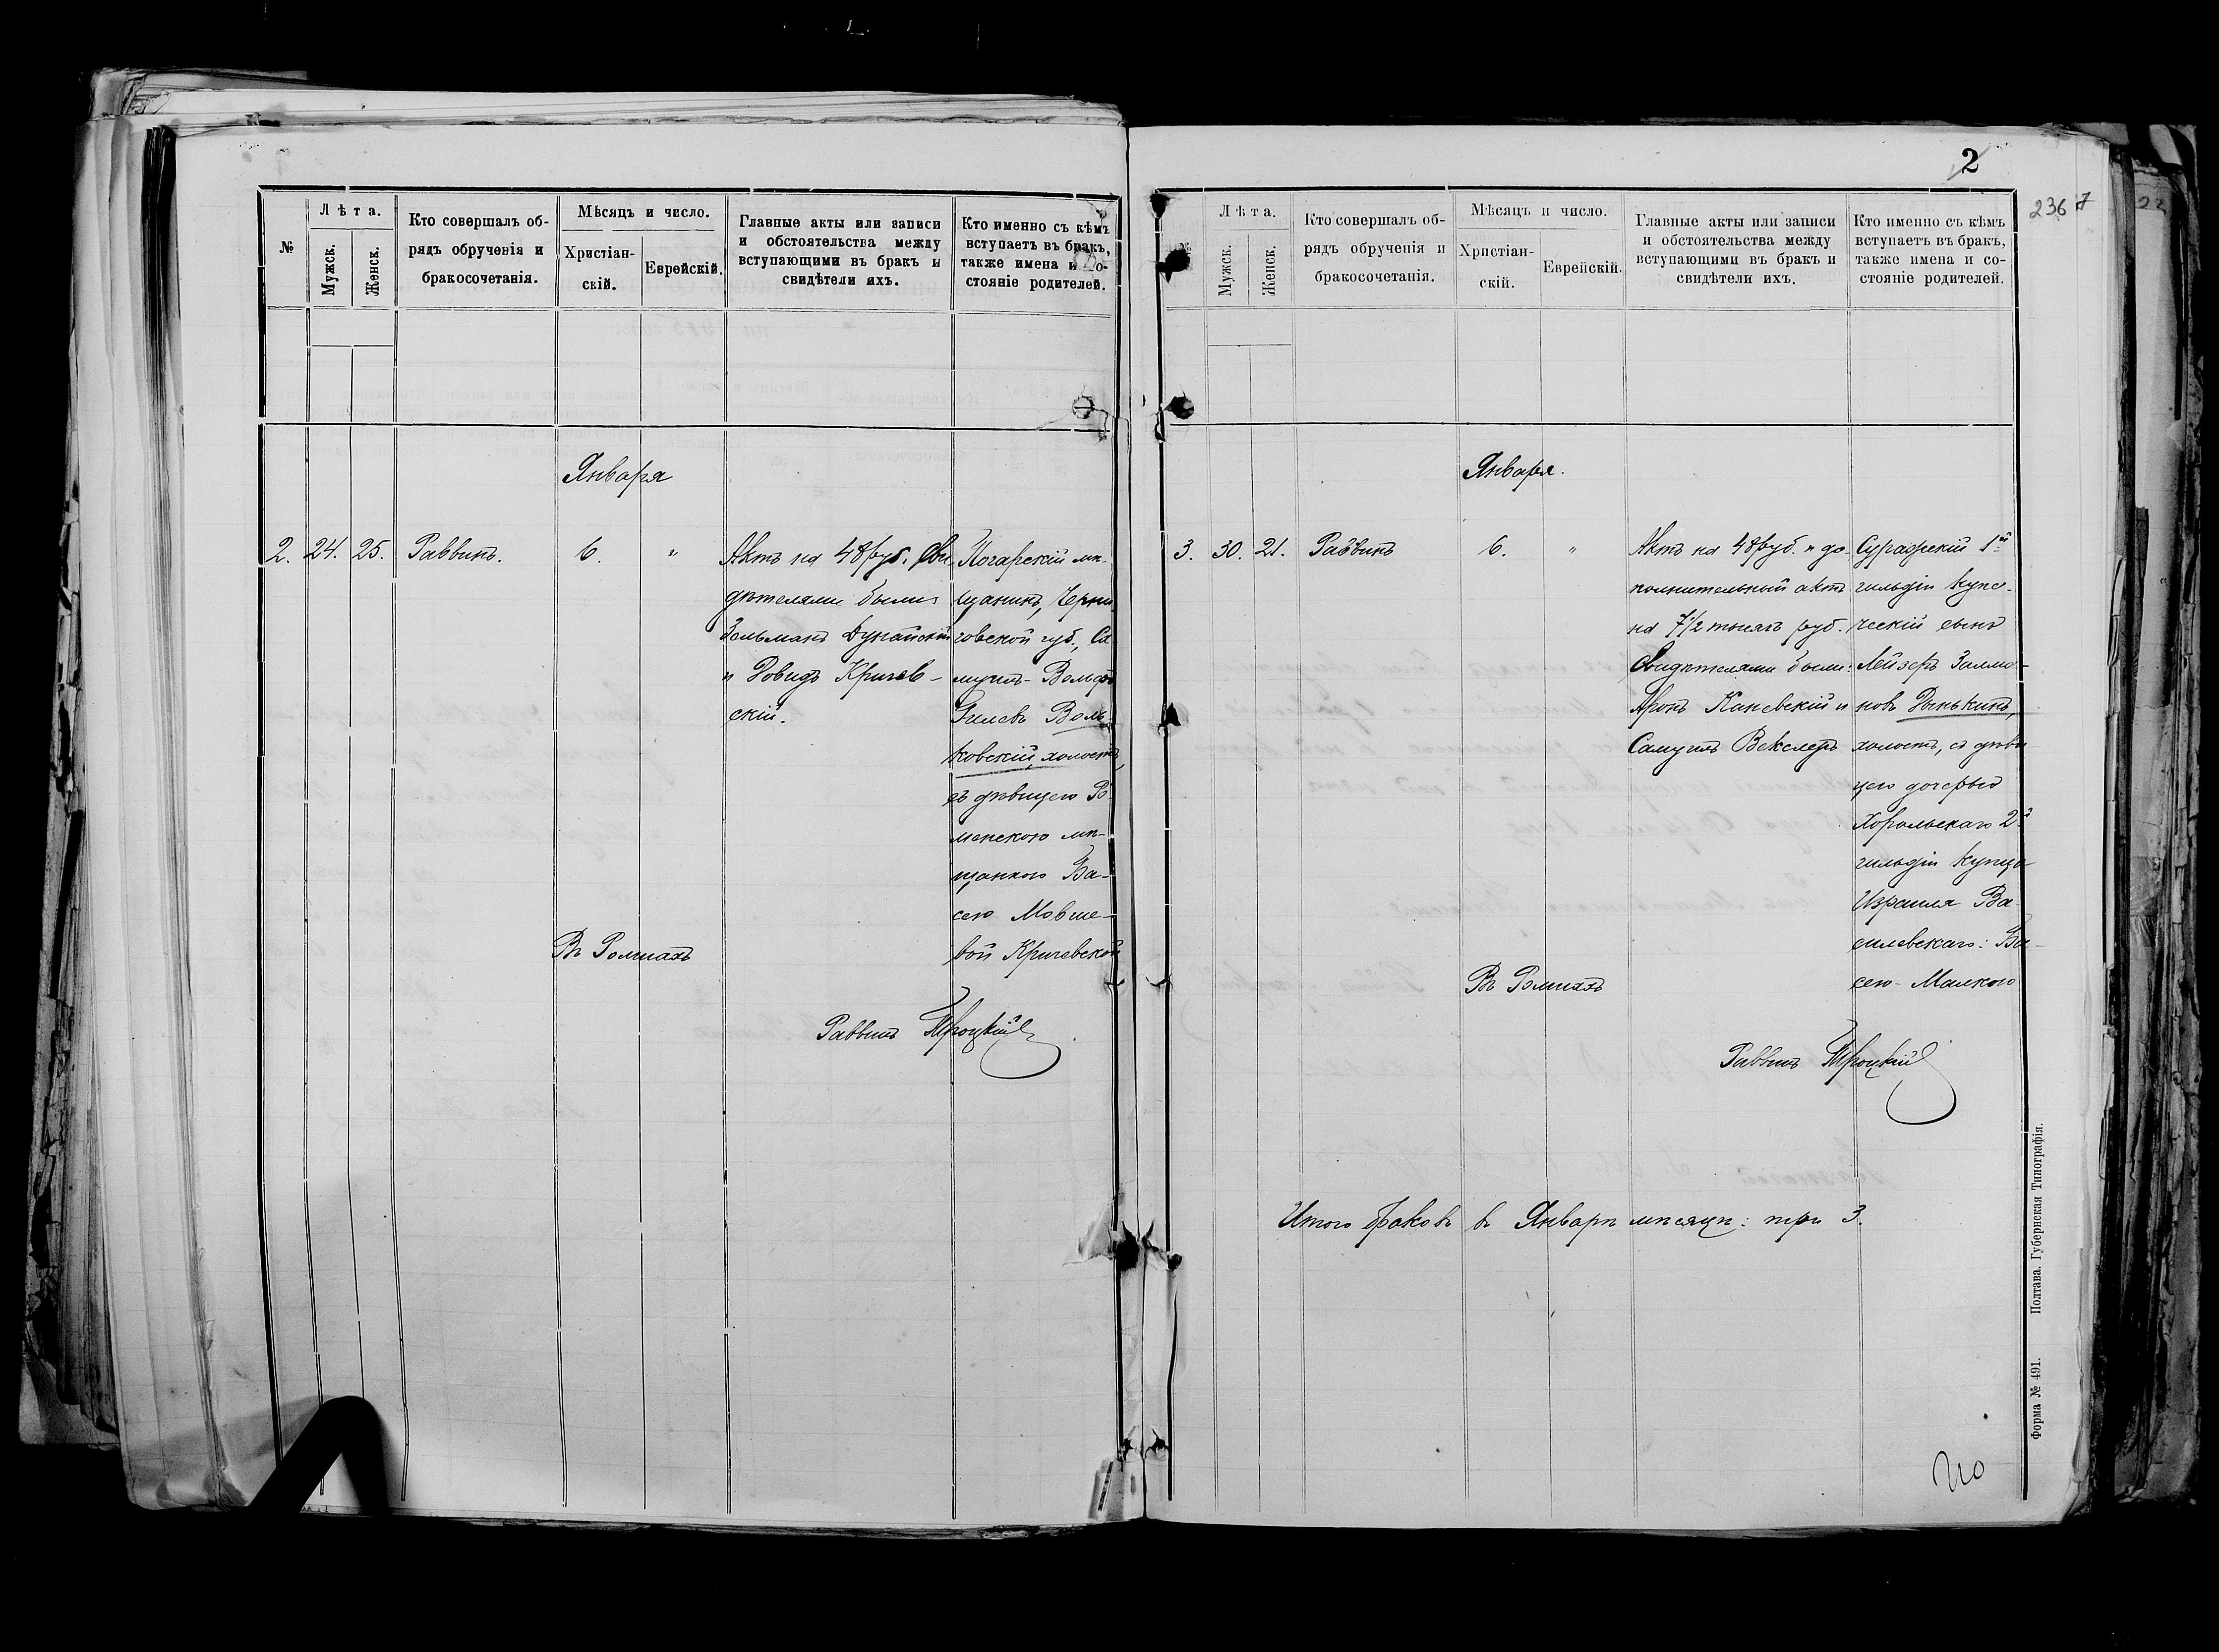 №
Лѣта.
Мужск.
Женск.
Кто совершалъ об-
рядъ обрученія и
бракосочетанія.
Мѣсяцъ и число.
Христіан-
скій.
Еврейскій.
Главные акты или записи
и обстоятельства между
вступающими въ бракъ и
свидѣтели ихъ.
Кто именно съ кѣмъ
вступаетъ въ бракъ,
также имена и со-
стояніе родителей.
Января
2. 24. 25. Раввинъ. 6. "
Актъ на 48 руб. Сви
дѣтелями были:
Зельманъ Дунайскій
и Довидъ Кричев-
скій.
Погарскій мѣ-
щанинъ, Черни
говской губ., Са
муилъ-Вольфъ
Гилевъ Воль
ковскій, холостъ,
съ дѣвицею Ро-
менскою мѣ-
щанкою Ба-
сею Мовше-
вой Кричевской
Въ Ромнахъ
Раввинъ Троцкій
2
236
7
22
Лѣта.
Мужск.
Женск.
Кто совершалъ об-
рядъ обрученія и
бракосочетанія.
Мѣсяцъ и число.
Христіан-
скій.
Еврейскій.
Главные акты или записи
и обстоятельства между
вступающими въ бракъ и
свидѣтели ихъ.
Кто именно съ кѣмъ
вступаетъ въ бракъ,
также имена и со-
стояніе родителей.
Января.
3. 30. 21. Раввинъ 6. "
Актъ на 48 руб. и до-
полнительный актъ
на 7½ тысячъ руб.
Свидѣтелями были:
Аронъ Каневскій и
Самуилъ Векслеръ
Суражскій 1й
гильдіи купе-
ческій сынъ
Лейзеръ Залма-
новъ Дынькинъ,
холостъ, съ дѣви
цею дочерью
Хорольскаго 2й
гильдіи купца
Израиля Ва-
силевскаго: Ба-
сею-Малкою
Въ Ромнахъ
Раввинъ Троцкій
Итого браковъ въ Январѣ мѣсяцѣ: три 3.
Форма № 491. Полтава. Губернская Типографія.